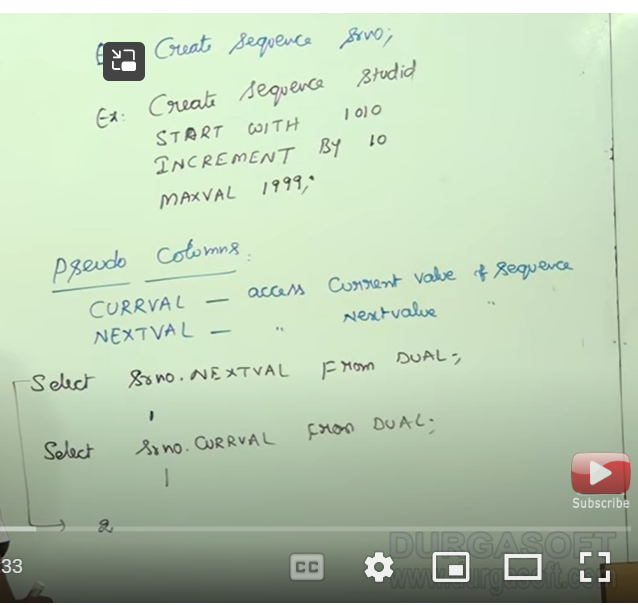 Create Sequence Srno;
Ex: Create Sequence Studid
START WITH 1010
INCREMENT BY 10
MAXVAL 1999;
Pseudo Columns:
CURRVAL — access Current value of Sequence
NEXTVAL — " Nextvalue "
Select Srno.NEXTVAL From DUAL;
1
Select Srno.CURRVAL From DUAL;
1
2
Subscribe
33
CC
DURGASOFT
www.durgasoft.com